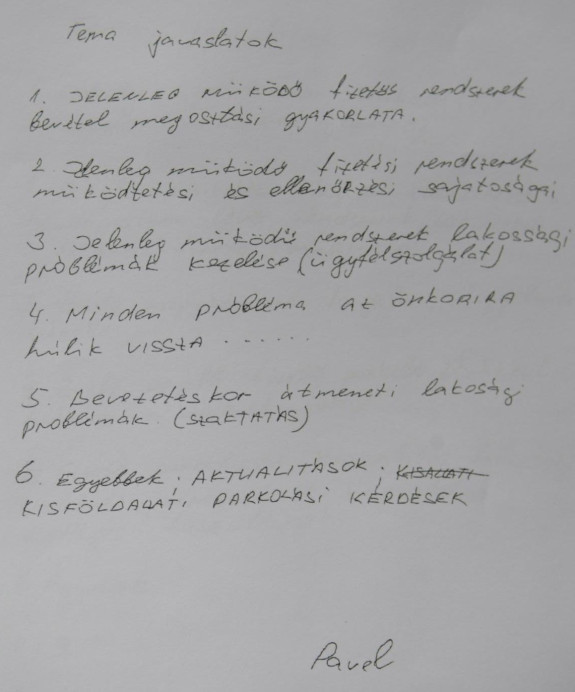 Tema javaslatok
1. JELENLEG MŰKÖDŐ fizetős rendszerek
bevétel megosztási gyakorlata.
2 Jelenleg működő fizetési rendszerek
működtetési és ellenőrzési sajatoságai
3. Jelenleg működő rendszerek lakossági
problémák kezelése (ügyfélszolgálat)
4. Minden probléma az önkorira
húlik vissza .......
5. Bevezetéskor átmeneti lakosági
problémák. (SZAKTATÁS)
6. Egyebbek; AKTUALITÁSOK;
KISFÖLDALATI PARKOLÁSI KÉRDÉSEK
Pavel